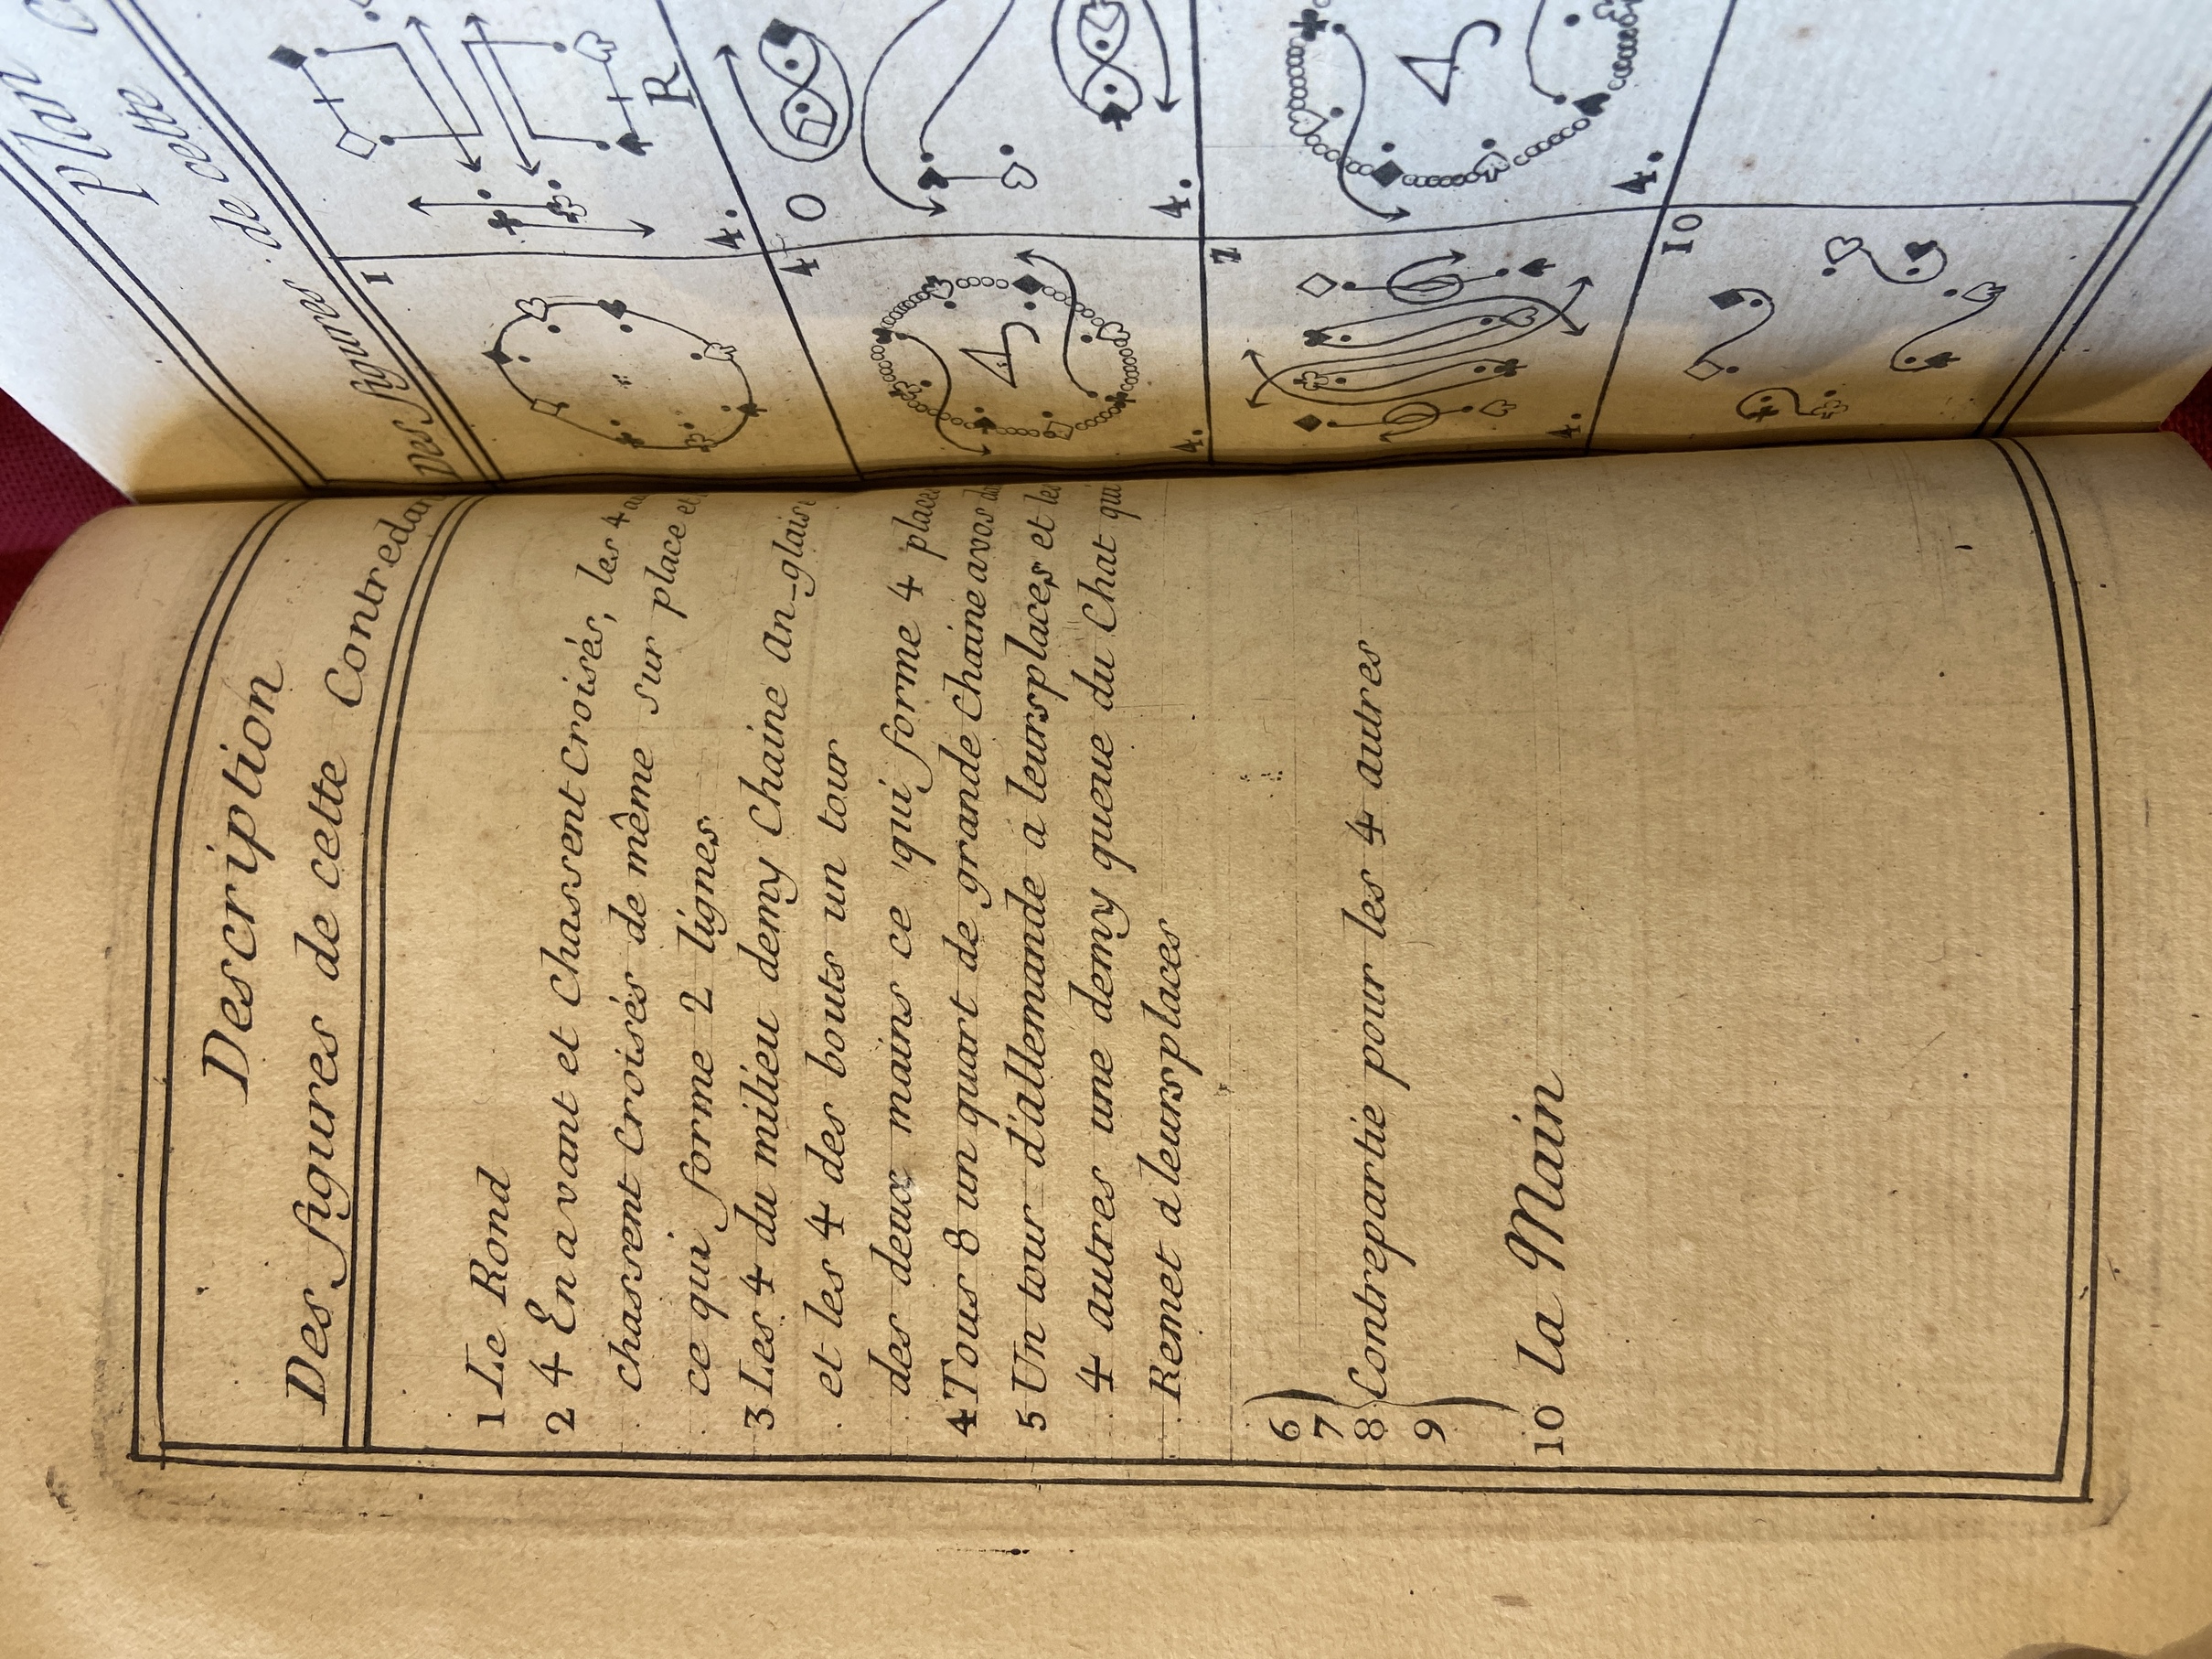 Description
Des figures de cette Contredan
1 Le Rond
2 4 En avant et Chassent Croisés, les 4 au
chassent Croisés de même sur place et
ce qui forme 2 lignes
3 Les 4 du milieu demy Chaine An-glaise
et les 4 des bouts un tour
des deux mains ce qui forme 4 place
4 Tous 8 un quart de grande Chaine avos da
5 Un tour d'allemande a leurs places et les
4 autres une demy queue du Chat qui
Remet a leurs places
6
7
8 Contrepartie pour les 4 autres
9
10 la Main
plan
de cette
Des figures
1
R
4.
4
4.
O
4.
7
4.
4.
10